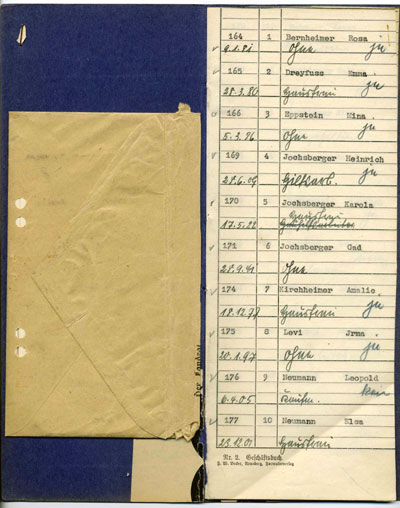 164 1 Bernheimer Rosa
9.1.81 ohne ja
165 2 Dreyfuss Emma
28.3.80 Hausfrau ja
166 3 Eppstein Mina
5.3.76 ohne ja
169 4 Jochsberger Heinrich
28.6.09 Hilfsarb. ja
170 5 Jochsberger Karola
Hausfrau
17.5.22
171 6 Jochsberger Gad
28.9.41 ohne
174 7 Kirchheimer Amalie
18.12.78 Hausfrau ja
175 8 Levi Jrma
20.1.97 ohne ja
176 9 Neumann Leopold
6.4.05 Kaufm.
177 10 Neumann Elsa
23.12.01 Hausfrau
Nr. 2. Geschäftsbuch.